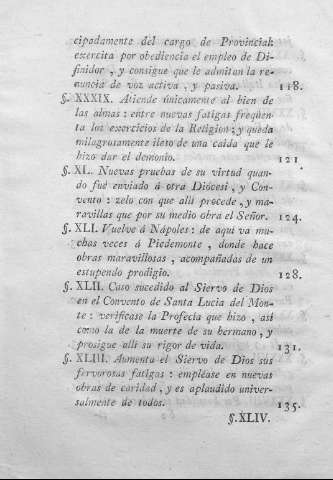 cipadamente del cargo de Provincial:
exercita por obediencia el empleo de Di-
finidor , y consigue que le admitan la re-
nuncia de voz activa , y pasiva. 118.
§. XXXIX. Atiende únicamente al bien de
las almas : entre nuevas fatigas freqüen-
ta los exercicios de la Religion ; y queda
milagrosamente ileso de una caida que le
hizo dar el demonio. 121
§. XL. Nuevas pruebas de su virtud quan-
do fué enviado á otra Diócesi , y Con-
vento : zelo con que alli procede , y ma-
ravillas que por su medio obra el Señor. 124.
§. XLI. Vuelve á Nápoles : de aqui va mu-
chas veces á Piedemonte , donde hace
obras maravillosas , acompañadas de un
estupendo prodigio. 128.
§. XLII. Caso sucedido al Siervo de Dios
en el Convento de Santa Lucia del Mon-
te : verificase la Profecía que hizo , asi
como la de la muerte de su hermano , y
prosigue alli su rigor de vida. 131.
§. XLIII. Aumenta el Siervo de Dios sus
fervorosas fatigas : empléase en nuevas
obras de caridad , y es aplaudido univer-
salmente de todos. 135.
§.XLIV.